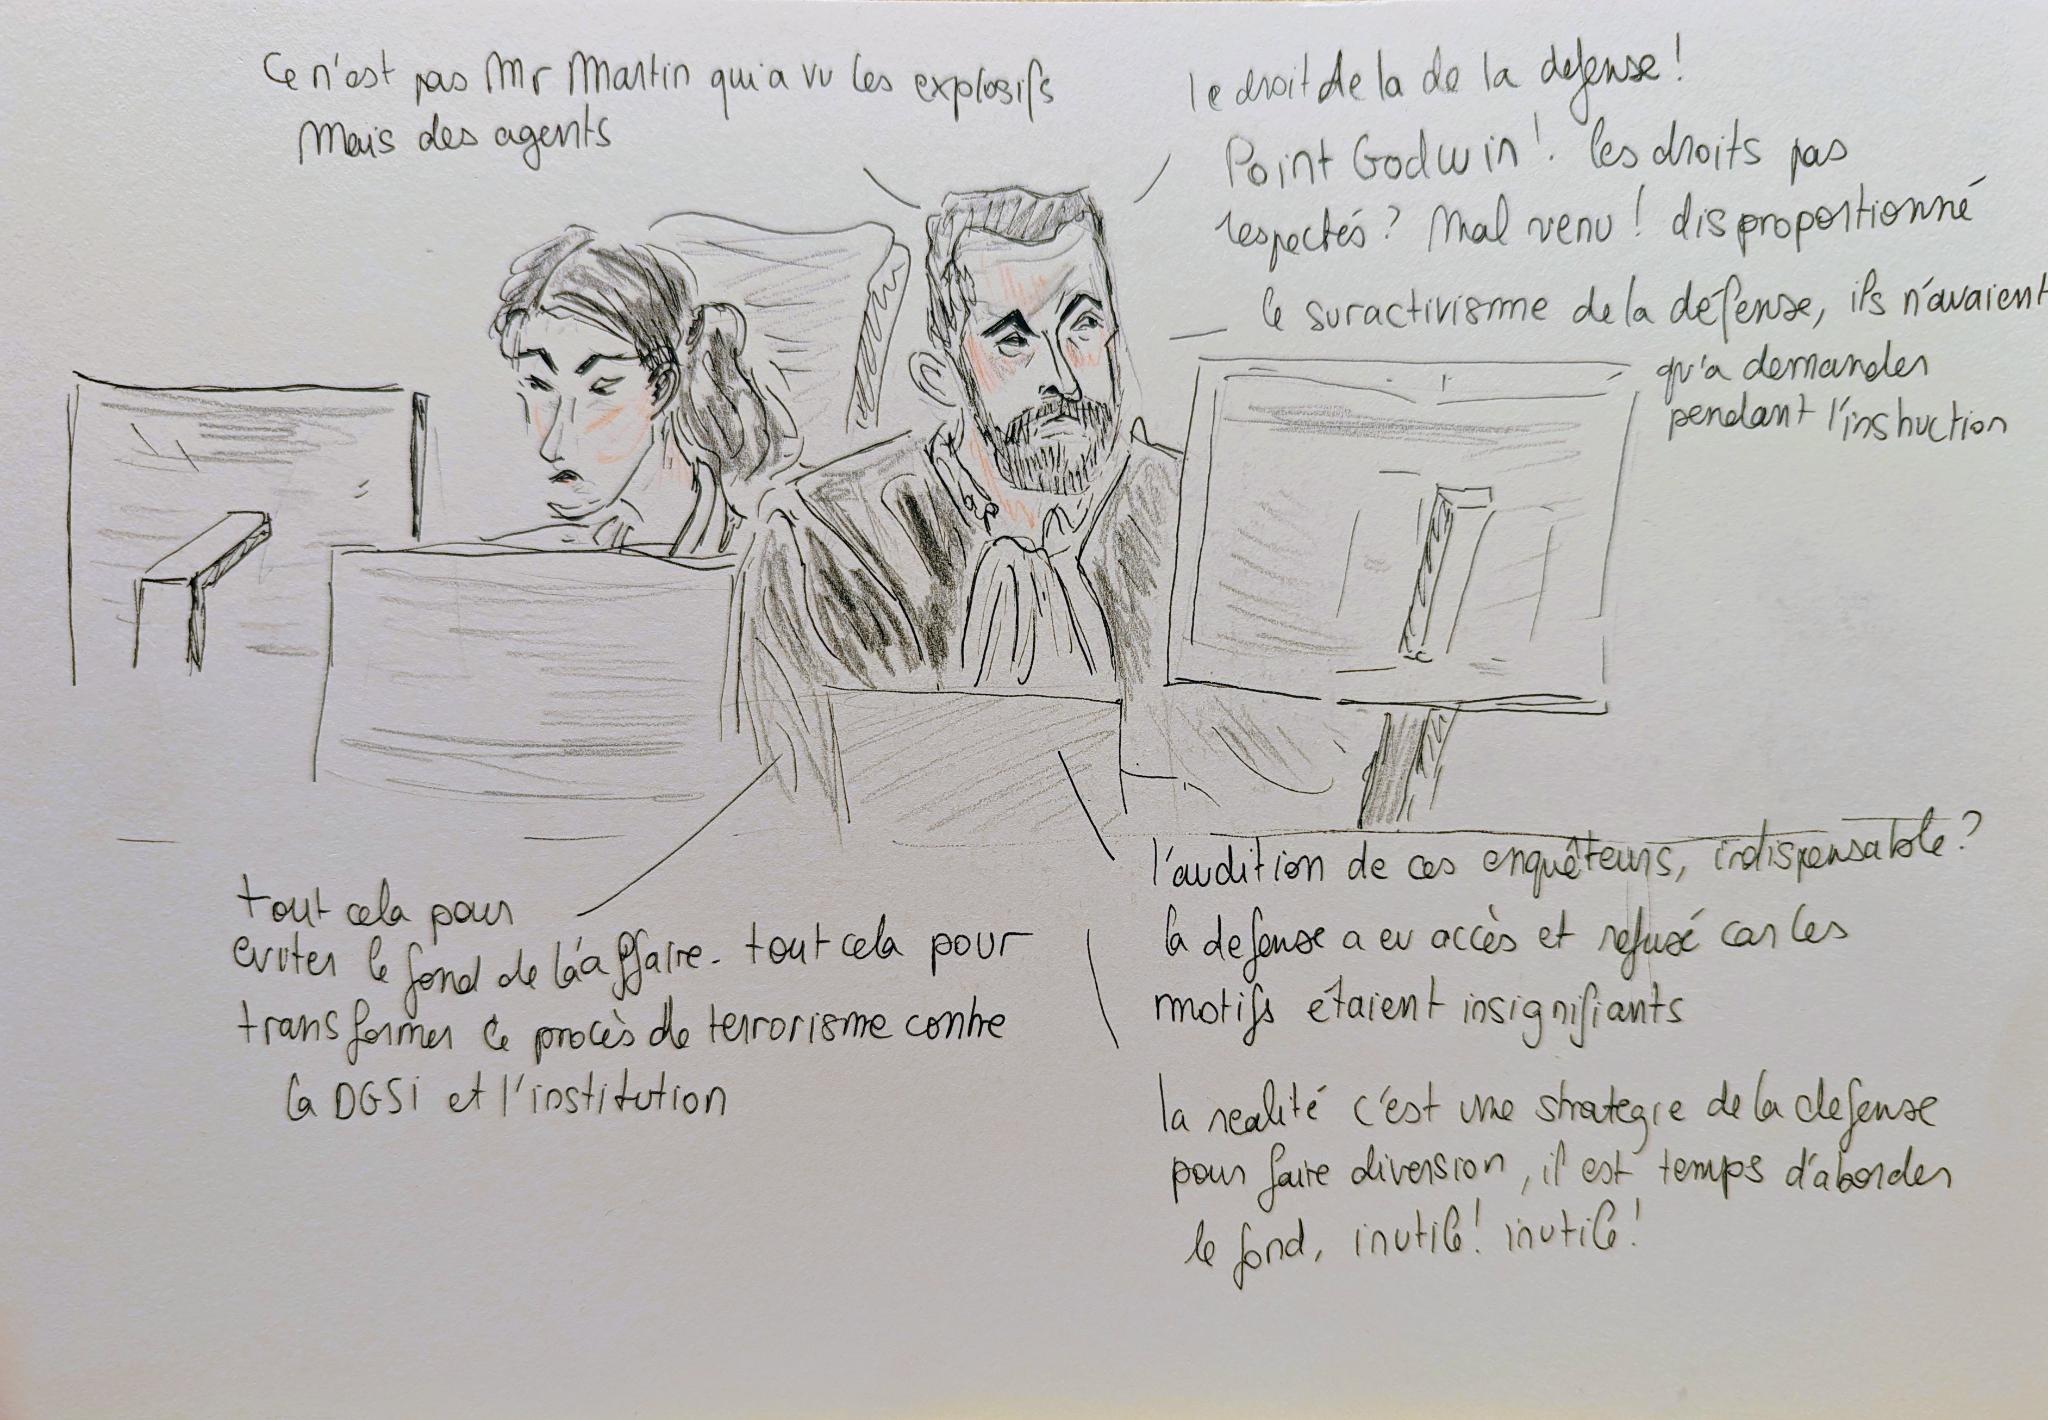 Ce n'est pas Mr Martin qui a vu les explosifs
Mais des agents
le droit de la de la defense !
Point Godwin ! les droits pas
respectés ? Mal venu ! disproportionné
le suractivisme de la défense, ils n'avaient
qu'a demander
pendant l'instruction
tout cela pour
eviter le fond de l'affaire. tout cela pour
transformer ce procès de terrorisme contre
la DGSI et l'institution
l'audition de ces enquêteurs, indispensable ?
la defense a eu accès et refusé car les
motifs étaient insignifiants
la realité c'est une strategie de la defense
pour faire diversion, il est temps d'aborder
le fond, inutile ! inutile !